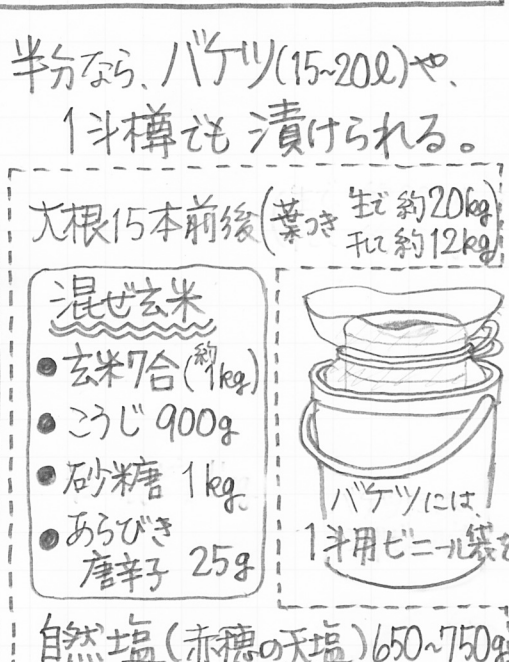 半分なら、バケツ(15~20ℓ)や、
1斗樽でも漬けられる。
大根15本前後(葉つき 生で約20kg)
干して約12kg
混ぜ玄米
●玄米7合(約1kg)
●こうじ 900g
●砂糖 1kg
●あらびき
唐辛子 25g
バケツには、
1斗用ビニール袋を
自然塩(赤穂の天塩)650~750g